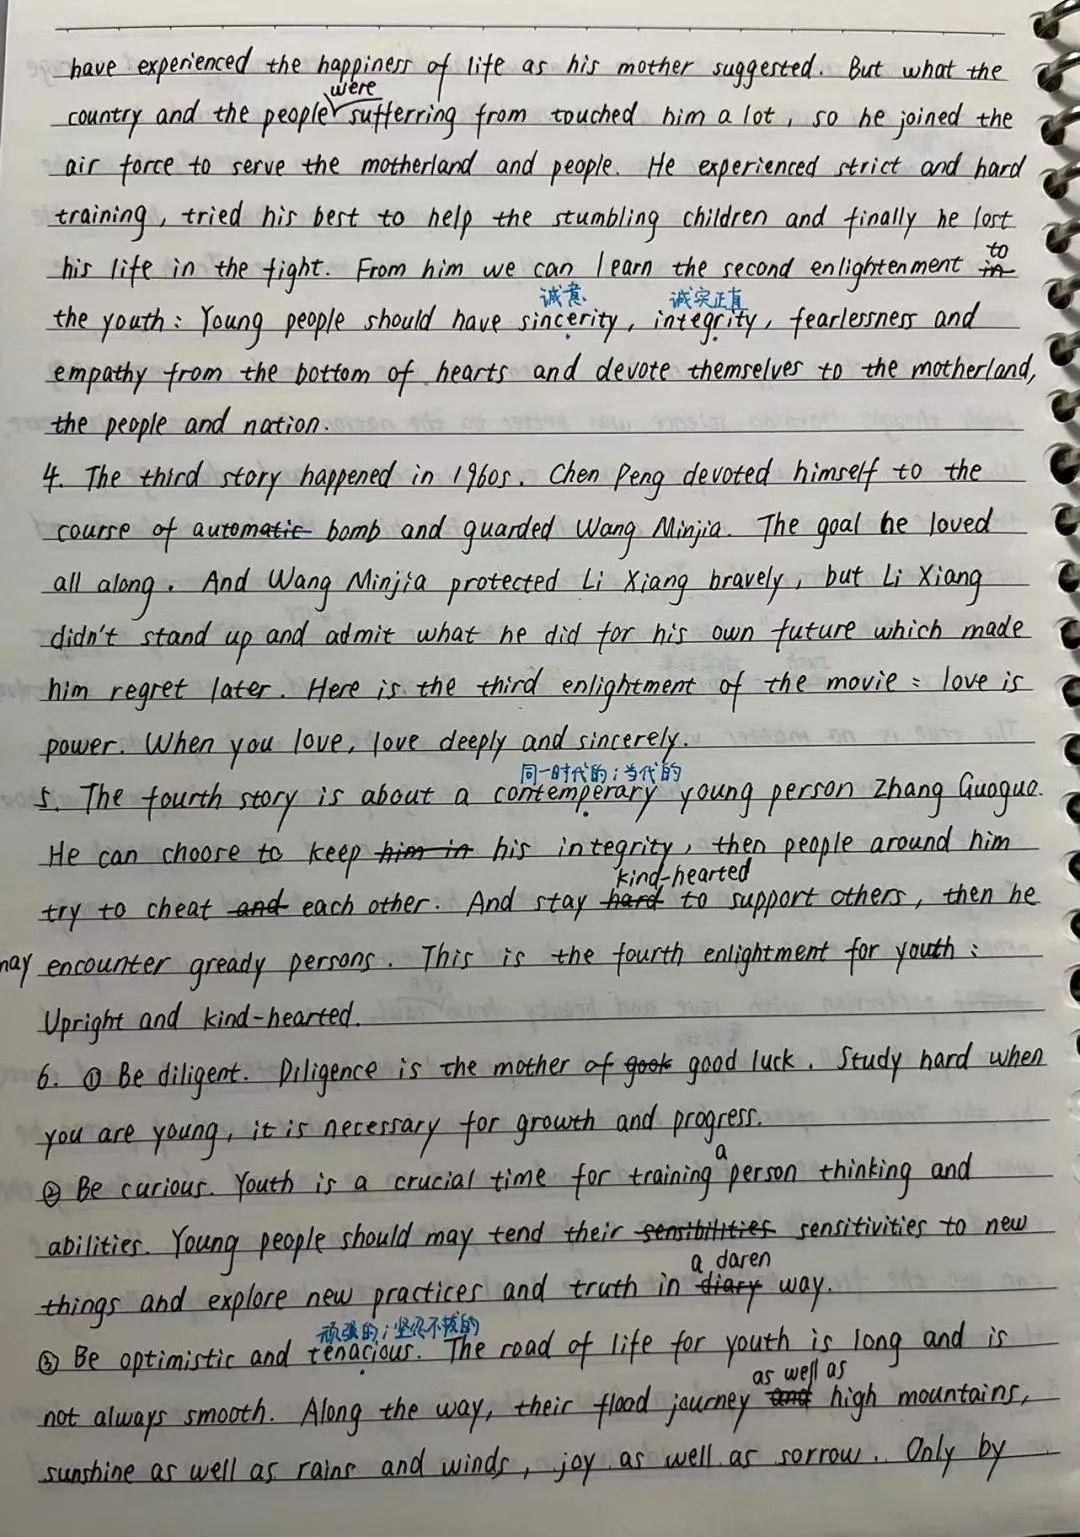 have experienced the happiness of life as his mother suggested. But what the
were
country and the people sufferring from touched him a lot, so he joined the
air force to serve the motherland and people. He experienced strict and hard
training, tried his best to help the stumbling children and finally he lost
to
his life in the fight. From him we can learn the second enlightenment in
诚意 诚实正直
the youth: Young people should have sincerity, integrity, fearlessness and
empathy from the bottom of hearts and devote themselves to the motherland,
the people and nation.
4. The third story happened in 1960s. Chen Peng devoted himself to the
course of automatic bomb and guarded Wang Minjia. The goal he loved
all along. And Wang Minjia protected Li Xiang bravely, but Li Xiang
didn't stand up and admit what he did for his own future which made
him regret later. Here is the third enlightment of the movie: love is
power. When you love, love deeply and sincerely.
同一时代的；当代的
5. The fourth story is about a contemperary young person Zhang Guoguo.
He can choose to keep him in his integrity, then people around him
kind-hearted
try to cheat and each other. And stay hard to support others, then he
may encounter gready persons. This is the fourth enlightment for youth:
Upright and kind-hearted.
6. ① Be diligent. Diligence is the mother of gook good luck. Study hard when
you are young, it is necessary for growth and progress.
a
② Be curious. Youth is a crucial time for training person thinking and
abilities. Young people should may tend their sensibilities sensitivities to new
a daren
things and explore new practices and truth in diary way.
顽强的；坚忍不拔的
③ Be optimistic and tenacious. The road of life for youth is long and is
as well as
not always smooth. Along the way, their flood journey and high mountains,
sunshine as well as rains and winds, joy as well as sorrow. Only by